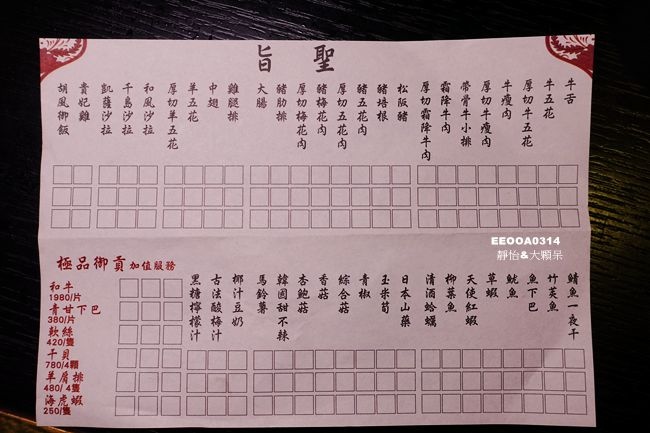 聖旨
牛舌
牛五花
厚切牛五花
牛瘦肉
厚切牛瘦肉
帶骨牛小排
霜降牛肉
厚切霜降牛肉
松阪豬
豬培根
豬五花肉
厚切五花肉
豬梅花肉
厚切梅花肉
豬肋排
大腸
雞腿排
中翅
羊五花
厚切羊五花
和風沙拉
千島沙拉
凱薩沙拉
貴妃雞
胡風御飯
EEOOA0314
靜怡&大顆呆
鯖魚一夜干
竹莢魚
魚下巴
魷魚
草蝦
天使紅蝦
柳葉魚
清酒蛤蠣
日本山藥
玉米筍
青椒
綜合菇
香菇
杏鮑菇
韓國甜不辣
馬鈴薯
椰汁豆奶
古法酸梅汁
黑糖檸檬汁
極品御貢加值服務
和牛
1980/片
青甘下巴
380/片
軟絲
420/隻
干貝
780/4顆
羊肩排
480/4隻
海虎蝦
250/隻